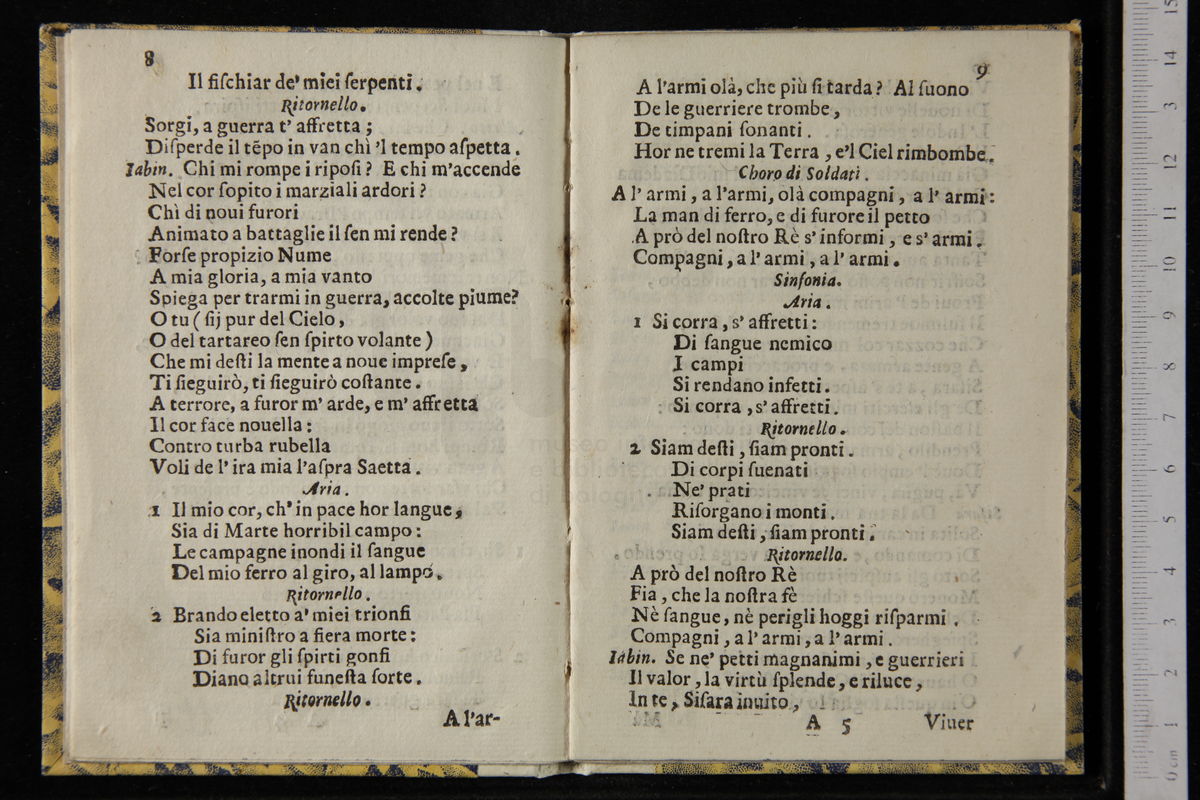 8
Il fiſchiar de' miei ſerpenti.
Ritornello.
Sorgi, a guerra t' affretta;
Diſperde il tēpo in van chì 'l tempo aſpetta.
Iabin. Chi mi rompe i ripoſi? E chi m'accende
Nel cor ſopito i marziali ardori?
Chì di noui furori
Animato a battaglie il ſen mi rende?
Forſe propizio Nume
A mia gloria, a mia vanto
Spiega per trarmi in guerra, accolte piume?
O tu (ſij pur del Cielo,
O del tartareo ſen ſpirto volante)
Che mi deſti la mente a noue impreſe,
Ti ſieguirò, ti ſieguirò coſtante.
A terrore, a furor m' arde, e m' affretta
Il cor face nouella:
Contro turba rubella
Voli de l' ira mia l'aſpra Saetta.
Aria.
1 Il mio cor, ch' in pace hor langue,
Sia di Marte horribil campo:
Le campagne inondi il ſangue
Del mio ferro al giro, al lampo.
Ritornello.
2 Brando eletto a' miei trionfi
Sia miniſtro a fiera morte:
Di furor gli ſpirti gonfi
Diano altrui funeſta ſorte.
Ritornello.
A l'ar-
9
A l'armi olà, che più ſi tarda? Al ſuono
De le guerriere trombe,
De timpani ſonanti.
Hor ne tremi la Terra, e'l Ciel rimbombe.
Choro di Soldati.
A l' armi, a l'armi, olà compagni, a l' armi:
La man di ferro, e di furore il petto
A prò del noſtro Rè s' informi, e s' armi.
Compagni, a l' armi, a l' armi.
Sinfonia.
Aria.
1 Si corra, s' affretti:
Di ſangue nemico
I campi
Si rendano infetti.
Si corra, s' affretti.
Ritornello.
2 Siam deſti, ſiam pronti.
Di corpi ſuenati
Ne' prati
Riſorgano i monti.
Siam deſti, ſiam pronti.
Ritornello.
A prò del noſtro Rè
Fia, che la noſtra fè
Nè ſangue, nè perigli hoggi riſparmi.
Compagni, a l' armi, a l' armi.
Iabin. Se ne' petti magnanimi, e guerrieri
Il valor, la virtù ſplende, e riluce,
In te, Siſara inuito,
A 5 Viuer